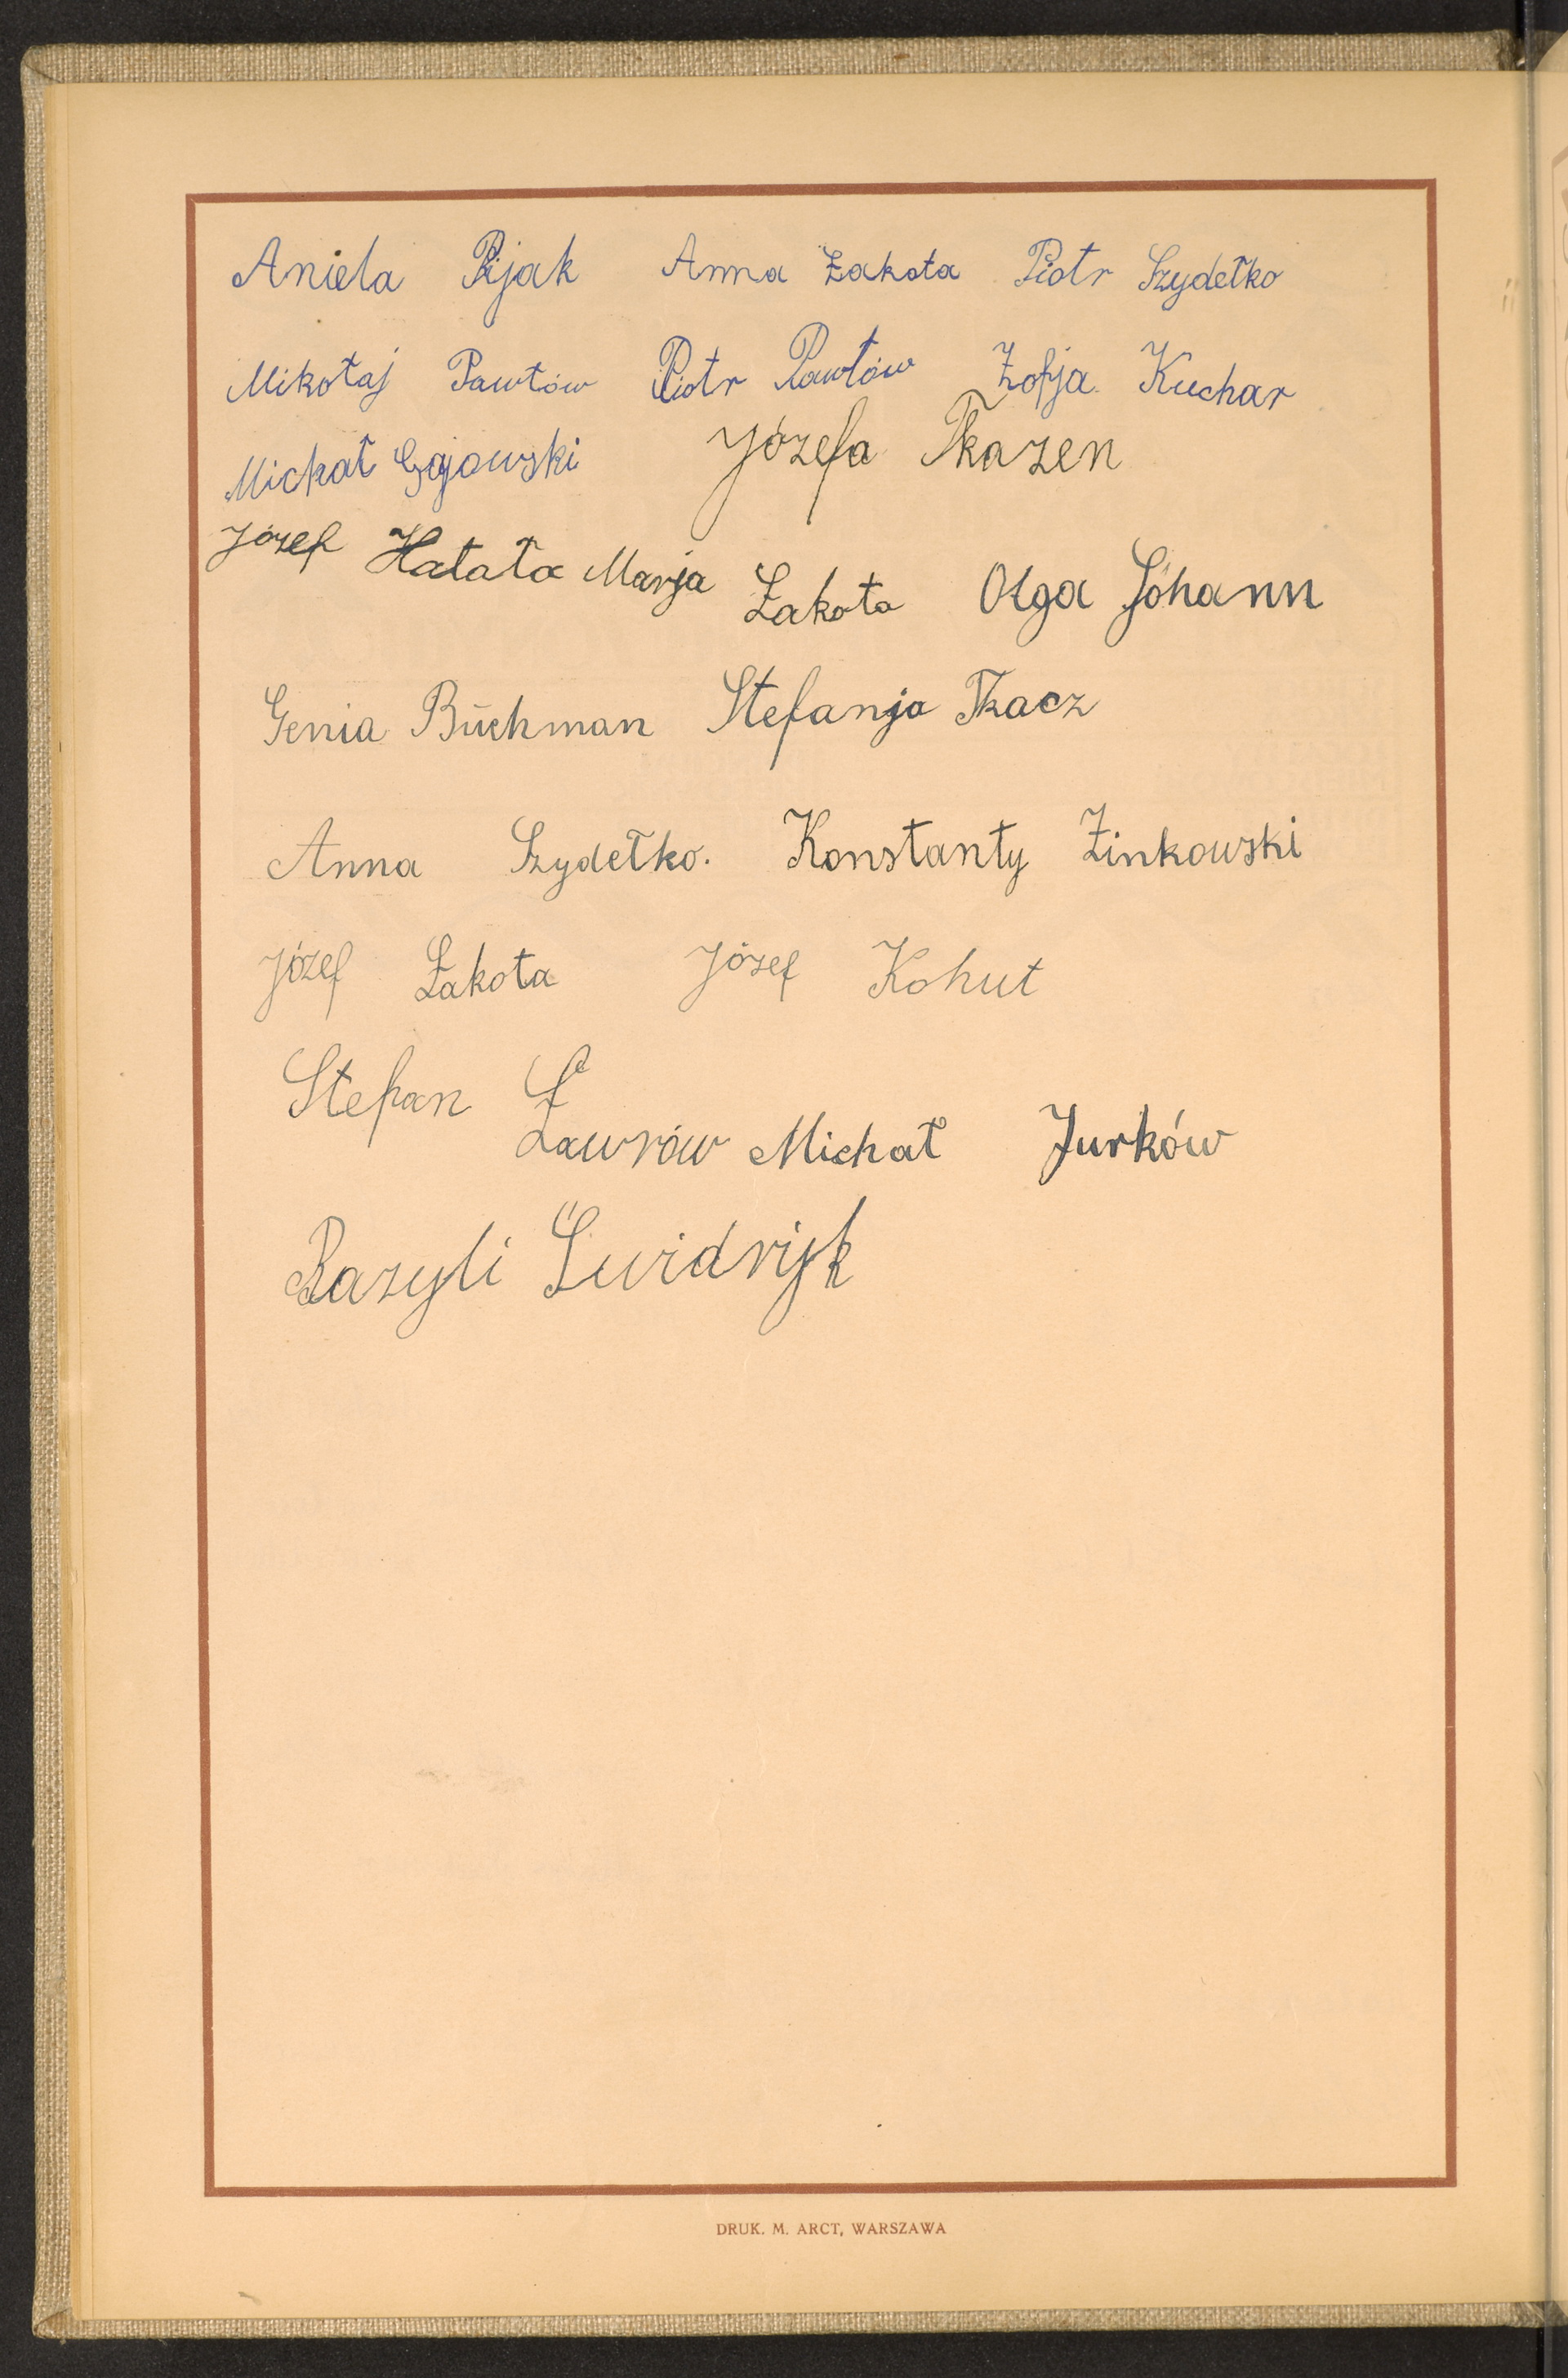 Aniela Pijak Anna Łakota Piotr Szydełko
Mikołaj Pawłów Piotr Pawłów Zofja Kuchar
Michał Gajowski Józefa Tkazen
Józef Hałata Marja Łakota Olga Johann
Genia Büchman Stefanja Tkacz
Anna Szydełko. Konstanty Zinkowski
Józef Łakota Józef Kohut
Stefan Ławrów Michał Jurków
Bazyli Świdryk
DRUK. M. ARCT, WARSZAWA